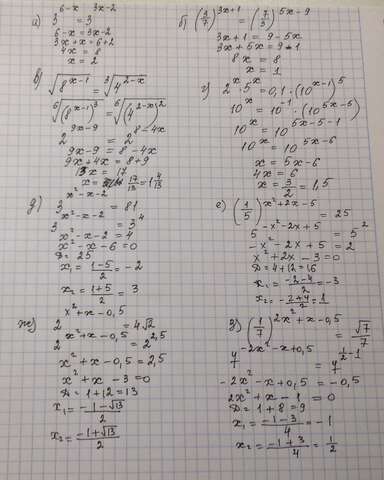 а) 3^(6-x) = 3^(3x-2)
6-x = 3x-2
3x+x = 6+2
4x = 8
x = 2
б) (1/7)^(3x+1) = (7/3)^(5x-9)
3x+1 = 9-5x
3x+5x = 9-1
8x = 8
x = 1
в) √(8^(x-1)) = ∛(4^(2-x))
⁶√((8^(x-1))^3) = ⁶√((4^(2-x))^2)
2^(9x-9) = 2^(8-4x)
9x-9 = 8-4x
9x+4x = 8+9
13x = 17
x = 17/13 = 1 4/13
г) 2^x · 5^x = 0,1 · (10^(x-1))^5
10^x = 10^(-1) · (10^(5x-5))
10^x = 10^(5x-5-1)
10^x = 10^(5x-6)
x = 5x-6
4x = 6
x = 3/2 = 1,5
д) 3^(x²-x-2) = 81
3^(x²-x-2) = 3^4
x²-x-2 = 4
x²-x-6 = 0
D = 25
x₁ = (1-5)/2 = -2
x₂ = (1+5)/2 = 3
е) (1/5)^(x²+2x-5) = 25
5^(-x²-2x+5) = 5²
-x²-2x+5 = 2
x²+2x-3 = 0
D = 4+12 = 16
x₁ = (-2-4)/2 = -3
x₂ = (-2+4)/2 = 1
ж) 2^(x²+x-0,5) = 4√2
2^(x²+x-0,5) = 2^(2,5)
x²+x-0,5 = 2,5
x²+x-3 = 0
D = 1+12 = 13
x₁ = (-1-√13)/2
x₂ = (-1+√13)/2
з) (1/7)^(2x²+x-0,5) = √7/7
7^(-2x²-x+0,5) = 7^(1/2-1)
-2x²-x+0,5 = -0,5
2x²+x-1 = 0
D = 1+8 = 9
x₁ = (-1-3)/4 = -1
x₂ = (-1+3)/4 = 1/2